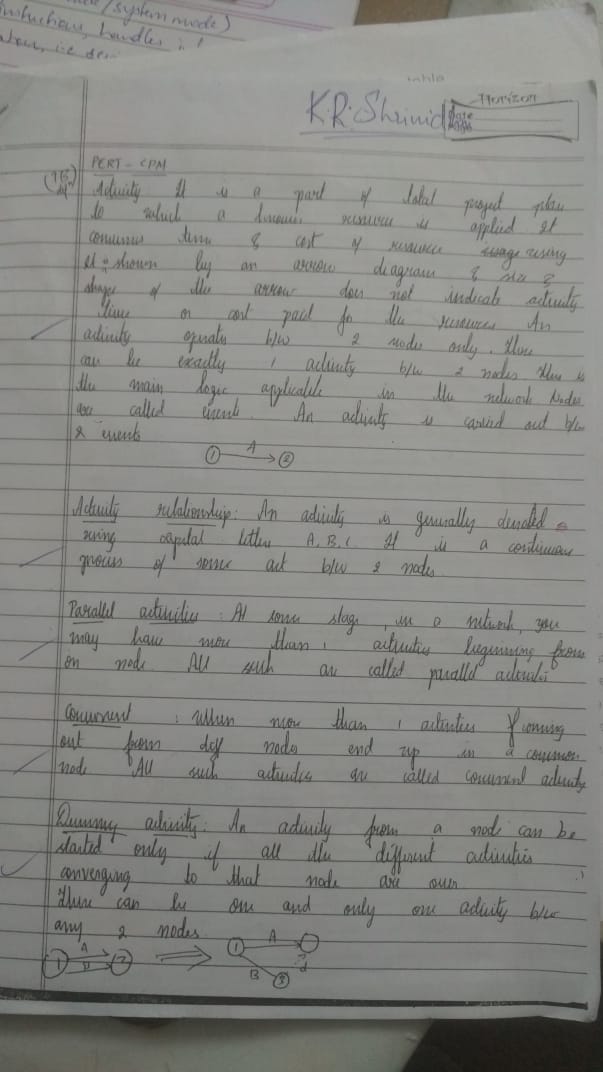 (system mode)
instructions, handles
K.R. Shrinid
Horizon
Date
Page
PERT - CPM
Activity It is a part of total project plan
to which a known resource is applied It
consumes time & cost of resource using
It is shown by an arrow diagram & size &
shape of the arrow does not indicate activity
time or cost paid for the resources An
activity operates b/w 2 nodes only. There
can be exactly 1 activity b/w 2 nodes This is
the main logic applicable in the network Nodes
are called events. An activity is carried out b/w
2 events
1 A 2
Activity relationship: An activity is generally denoted
using capital letters A, B, C. It is a continuous
process of some act b/w 2 nodes
Parallel activities: At some stage, in a network, you
may have more than 1 activities beginning from
on node All such are called parallel activities
Concurrent : when more than 1 activities coming
out from diff nodes end up in a common
node All such activities are called concurrent activity
Dummy activity: An activity from a node can be
started only if all the different activities
converging to that node are over
There can be one and only one activity b/w
any 2 nodes.
A
1 B 2
1 A
d
B 3